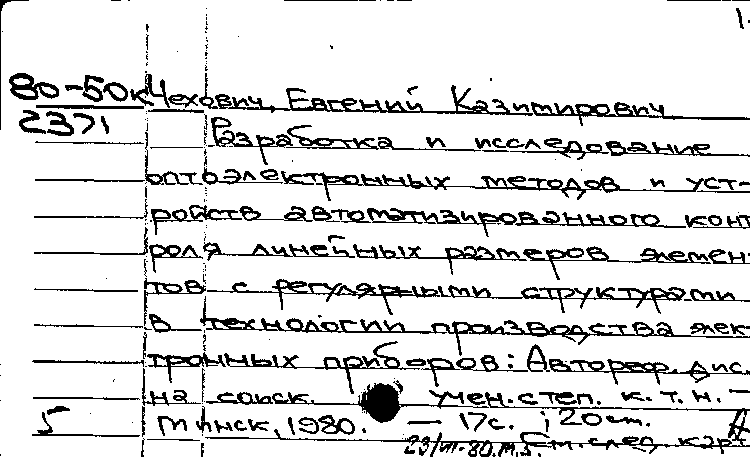 1.
80-50к Чехович, Евгений Казимирович
2371 Разработка и исследование
оптоэлектронных методов и уст-
ройств автоматизированного конт
роля линейных размеров элемен
тов с регулярными структурами
в технологии производства элек
тронных приборов: Автореф. дис.
на соиск. учен. степ. к.т.н. —
5 Минск, 1980. — 17с. ; 20см.
См. след. карт